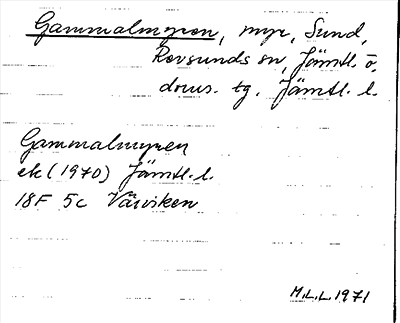 Gammalmyren, myr, Sund,
Revsunds sn, Jämtl. ö.
doms. tg. Jämtl. l.
Gammalmyren
ek (1970) Jämtl. l.
18F 5c Välviken
M.L.L. 1971